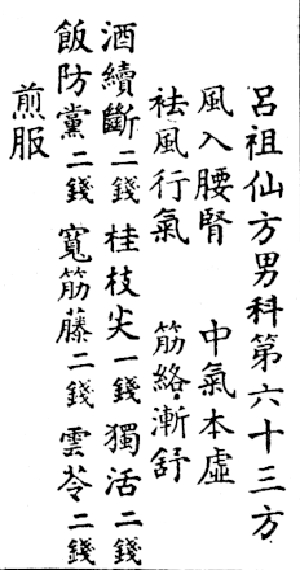 呂祖仙方男科第六十三方
風入腰腎　中氣本虛
祛風行氣　筋絡漸舒
酒續斷二錢　桂枝尖一錢　獨活二錢
飯防黨二錢　寬筋藤二錢　雲苓二錢
煎服